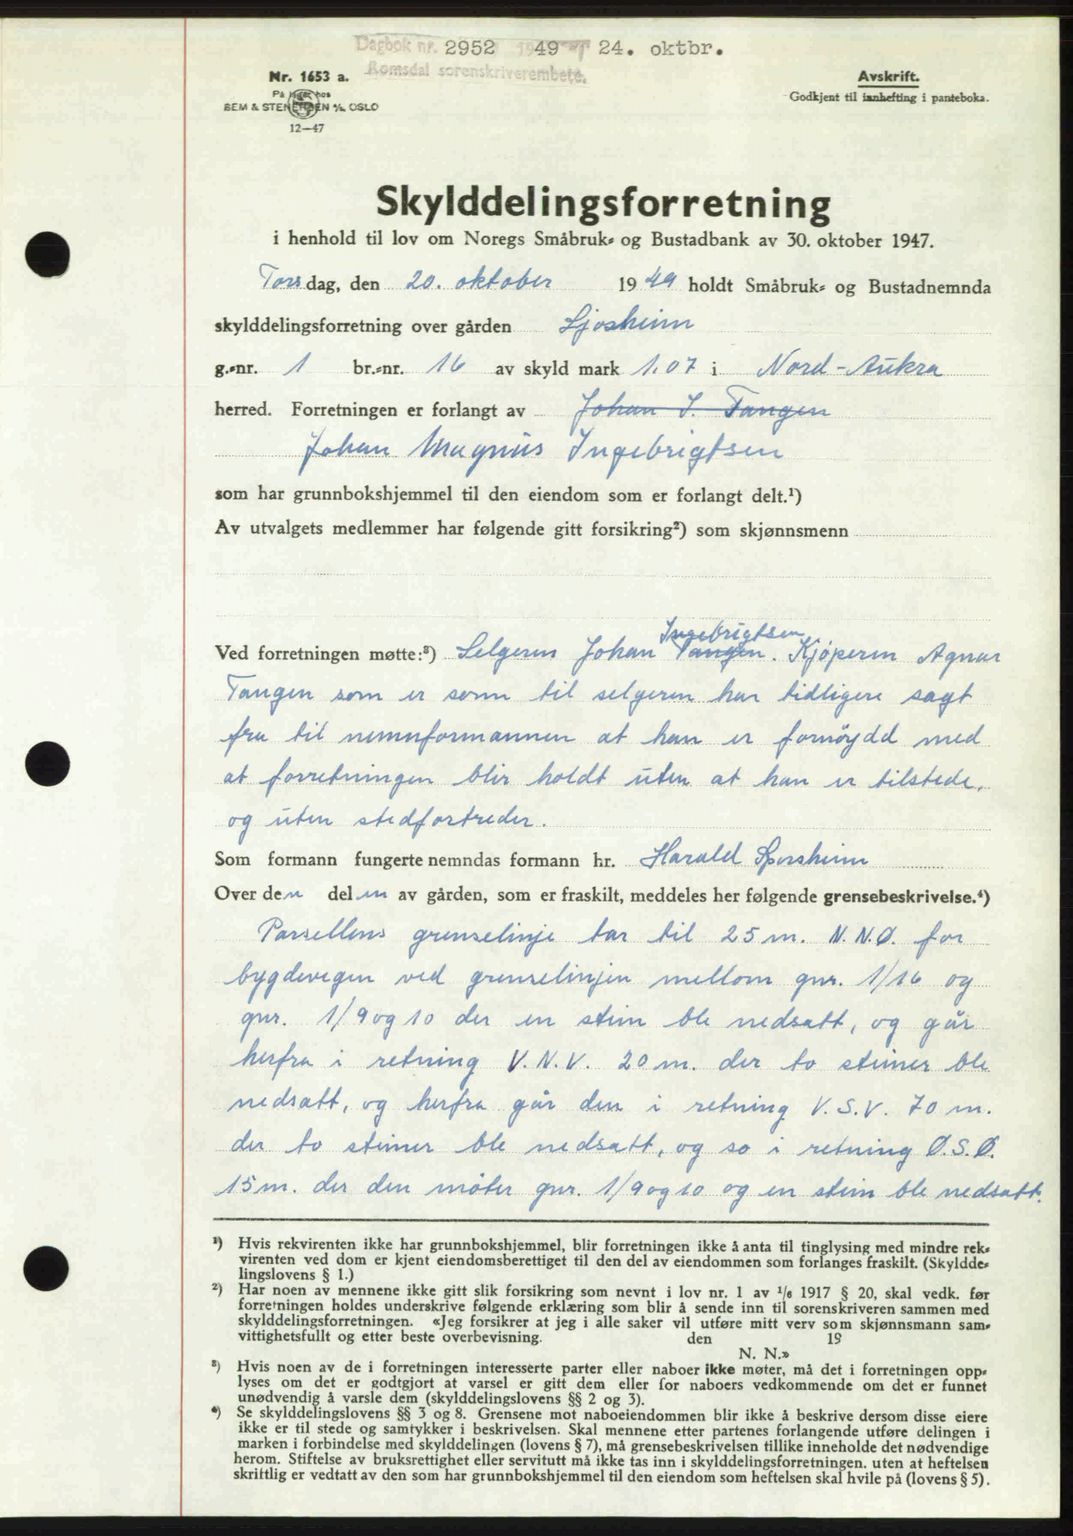 Dagbok nr. 2952 1949 24. oktbr.
Romsdal sorenskriverembete.
Nr. 1653 a.
På lager hos
SEM & STENERSEN A/S, OSLO
12—47
Avskrift.
Godkjent til innhefting i panteboka.
Skylddelingsforretning
i henhold til lov om Noregs Småbruk- og Bustadbank av 30. oktober 1947.
Torsdag, den 20. oktober 1949 holdt Småbruk- og Bustadnemnda
skylddelingsforretning over gården Ljosheim
g.-nr. 1 br.-nr. 16 av skyld mark 1.07 i Nord-Aukra
herred. Forretningen er forlangt av Johan I. Tangen
Johan Magnus Ingebrigtsen
som har grunnbokshjemmel til den eiendom som er forlangt delt.¹)
Av utvalgets medlemmer har følgende gitt forsikring²) som skjønnsmenn
Ingebrigtsen
Ved forretningen møtte:³) Selgeren Johan Tangen. Kjøperen Agnar
Tangen som er sønn til selgeren har tidligere sagt
fra til nemnformannen at han er fornøydd med
at forretningen blir holdt uten at han er tilstede,
og uten stedfortreder.
Som formann fungerte nemndas formann hr. Harald
Over den delen av gården, som er fraskilt, meddeles her følgende grensebeskrivelse.⁴)
Parsellens grenselinje tar til 25 m. N.N.Ø. for
bygdevegen ved grenselinjen mellom gnr. 1/16 og
gnr. 1/9 og 10 der en stein ble nedsatt, og går
herfra i retning V.N.V. 20 m. der to steiner ble
nedsatt, og herfra går den i retning V.S.V. 70 m.
der to steiner ble nedsatt, og so i retning Ø.S.Ø.
15 m. der den møter gnr. 1/9 og 10 og en stein ble nedsatt.
¹) Hvis rekvirenten ikke har grunnbokshjemmel, blir forretningen ikke å anta til tinglysing med mindre rek-
virenten ved dom er kjent eiendomsberettiget til den del av eiendommen som forlanges fraskilt. (Skyldde-
lingslovens § 1.)
²) Har noen av mennene ikke gitt slik forsikring som nevnt i lov nr. 1 av ¹/₆ 1917 § 20, skal vedk. før
forretningen holdes underskrive følgende erklæring som blir å sende inn til sorenskriveren sammen med
skylddelingsforretningen. «Jeg forsikrer at jeg i alle saker vil utføre mitt verv som skjønnsmann sam-
vittighetsfullt og etter beste overbevisning. den 19
N. N.»
³) Hvis noen av de i forretningen interesserte parter eller naboer ikke møter, må det i forretningen opp-
lyses om det er godtgjort at varsel er gitt dem eller for naboers vedkommende om det er funnet
unødvendig å varsle dem (skylddelingslovens §§ 2 og 3).
⁴) Se skylddelingslovens §§ 3 og 8. Grensene mot naboeiendommen blir ikke å beskrive dersom disse eiere
ikke er til stede og samtykker i beskrivelsen. Skal mennene etter partenes forlangende utføre delingen i
marken i forbindelse med skylddelingen (lovens § 7), må grensebeskrivelsen tillike inneholde det nødvendige
herom. Stiftelse av bruksrettighet eller servitutt må ikke tas inn i skylddelingsforretningen, uten at heftelsen
skriftlig er vedtatt av den som har grunnbokshjemmel til den eiendom som heftelsen skal hvile på (lovens § 5).